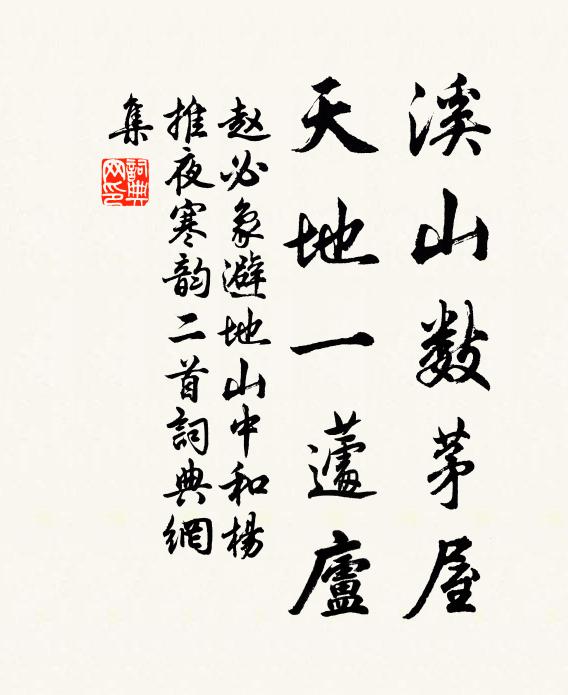 溪山數茅屋
天地一蘧廬
赵必象避地山中和楊
推夜寒韵二首詞典網
集
詞典网印